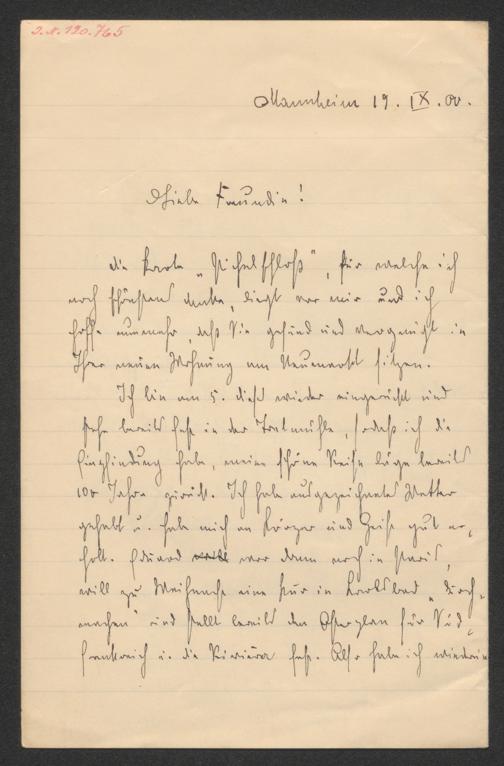 J.N. 120.765
Mannheim 19. IX. 00.
Liebe Freundin!
die Karte „Michelschloß“, für welche ich
noch schönstens danke, liegt vor mir und ich
hoffe nunmehr, daß Sie gesund und vergnügt in
Ihrer neuen Wohnung am Neumarkt sitzen.
Ich bin am 5. dieß wieder eingerückt und
stehe bereits fest in der Tretmühle, sodaß ich die
Empfindung habe, meine schöne Reise läge bereits
100 Jahre zurück. Ich habe ausgezeichnetes Wetter
gehabt u. habe mich an Körper und Geist gut er-
holt. Eduard war dann noch in Paris,
will zu Weihnacht eine Kur in Karlsbad „durch-
machen“ und stellt bereits den Osterplan für Süd-
frankreich u. die Riviera fest. Also habe ich wiederum